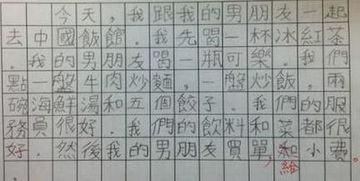 今天,我跟我的男朋友一起
去中國飯館.我先喝一杯冰紅茶
.我的男朋友喝一瓶可樂.我們
點一盤牛肉炒麵,一盤炒飯,兩
碗海鮮湯和五個餃子.我們的服
務員很好.我們的飲料和菜都很
好.然後我的男朋友買單,和小費
給
.